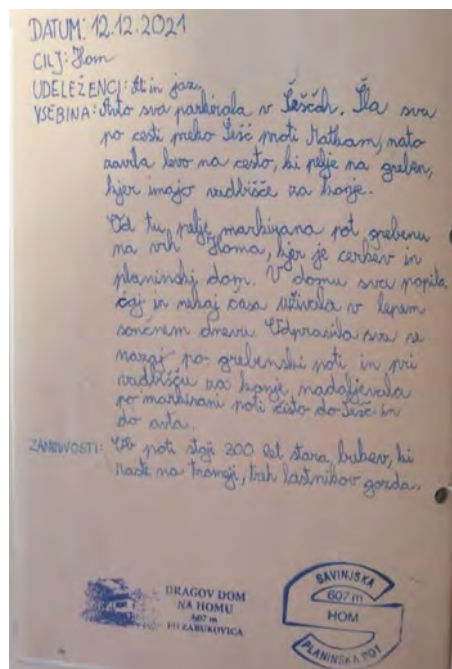 DATUM: 12.12.2021
CILJ: Hom
UDELEŽENCI: Ati in jaz
VSEBINA: Avto sva parkirala v Šeščah. Šla sva
po cesti preko Šešč proti Matkam, nato
zavila levo na cesto, ki pelje na greben,
kjer imajo vadbišče za konje.
Od tu pelje markirana pot grebenu
na vrh Homa, kjer je cerkev in
planinski dom. V domu sva popila
čaj in nekaj časa uživala v lepem
sončnem dnevu. Odpravila sva se
nazaj po grebenski poti in pri
vadbišču za konje nadaljevala
po markirani poti čisto do Šešč in
do avta.
ZANIMIVOSTI: Ob poti stoji 300 let stara bukev, ki
raste na tromeji, treh lastnikov gozda.
DRAGOV DOM
NA HOMU
607 m
PD ZABUKOVICA
SAVINJSKA
607 m
HOM
PLANINSKA POT